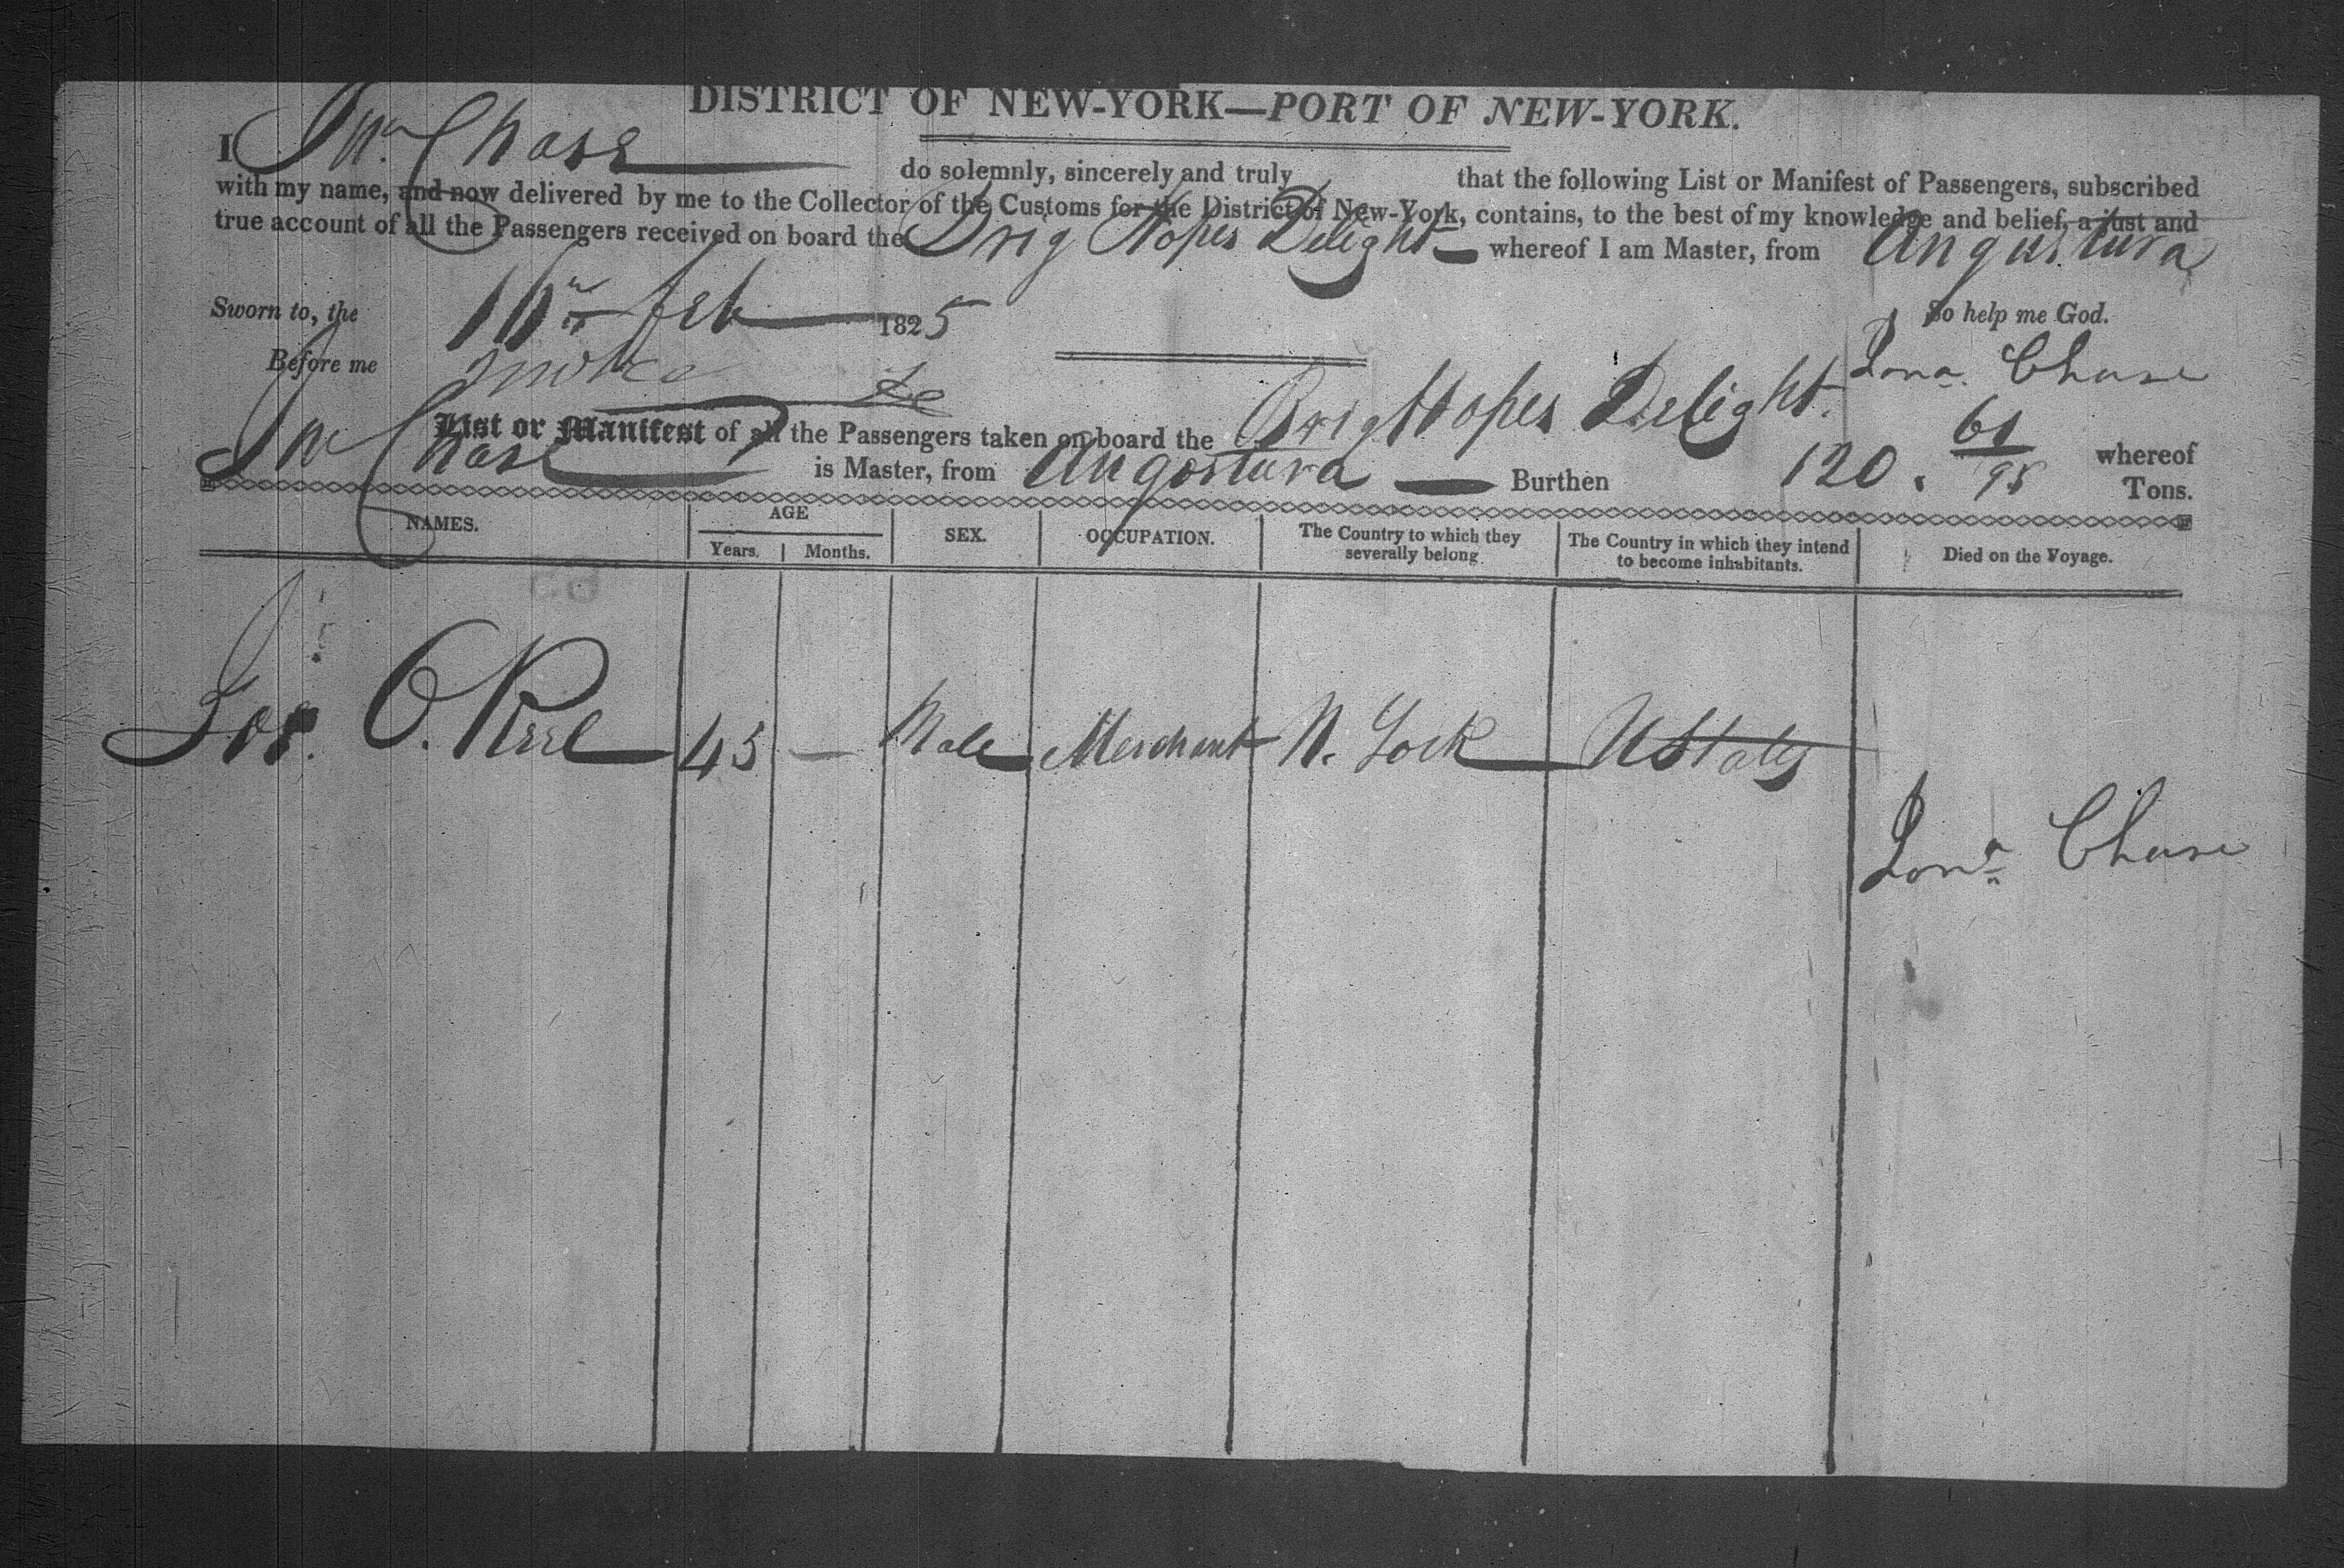 DISTRICT OF NEW-YORK—PORT OF NEW-YORK.
I Jna Chase do solemnly, sincerely and truly that the following List or Manifest of Passengers, subscribed
with my name, and now delivered by me to the Collector of the Customs for the District of New-York, contains, to the best of my knowledge and belief, a just and
true account of all the Passengers received on board the Brig Hopes Delight whereof I am Master, from Angustura
Sworn to, the 16th Feb 1825 So help me God.
Before me Jona. Chase
List or Manifest of all the Passengers taken on board the Brig Hopes Delight. whereof
Jna Chase is Master, from Angostura Burthen 120. 61/95 Tons.
NAMES. AGE Years. Months. SEX. OCCUPATION. The Country to which they severally belong The Country in which they intend to become inhabitants. Died on the Voyage.
Jos. O. 45 — Male Merchant N. York UStates
Jona Chase